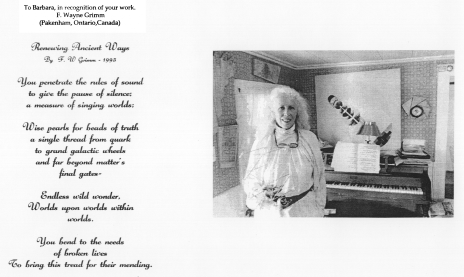 To Barbara, in recognition of your work.
F. Wayne Grimm
(Pakenham, Ontario,Canada)
Renewing Ancient Ways
By F. W Grimm - 1995
You penetrate the rules of sound
to give the pause of silence;
a measure of singing worlds;
Wise pearls for beads of truth
a single thread from quark
to grand galactic wheels
and far beyond matter's
final gates-
Endless wild wonder,
Worlds upon worlds within
worlds.
You bend to the needs
of broken lives
To bring this tread for their mending.